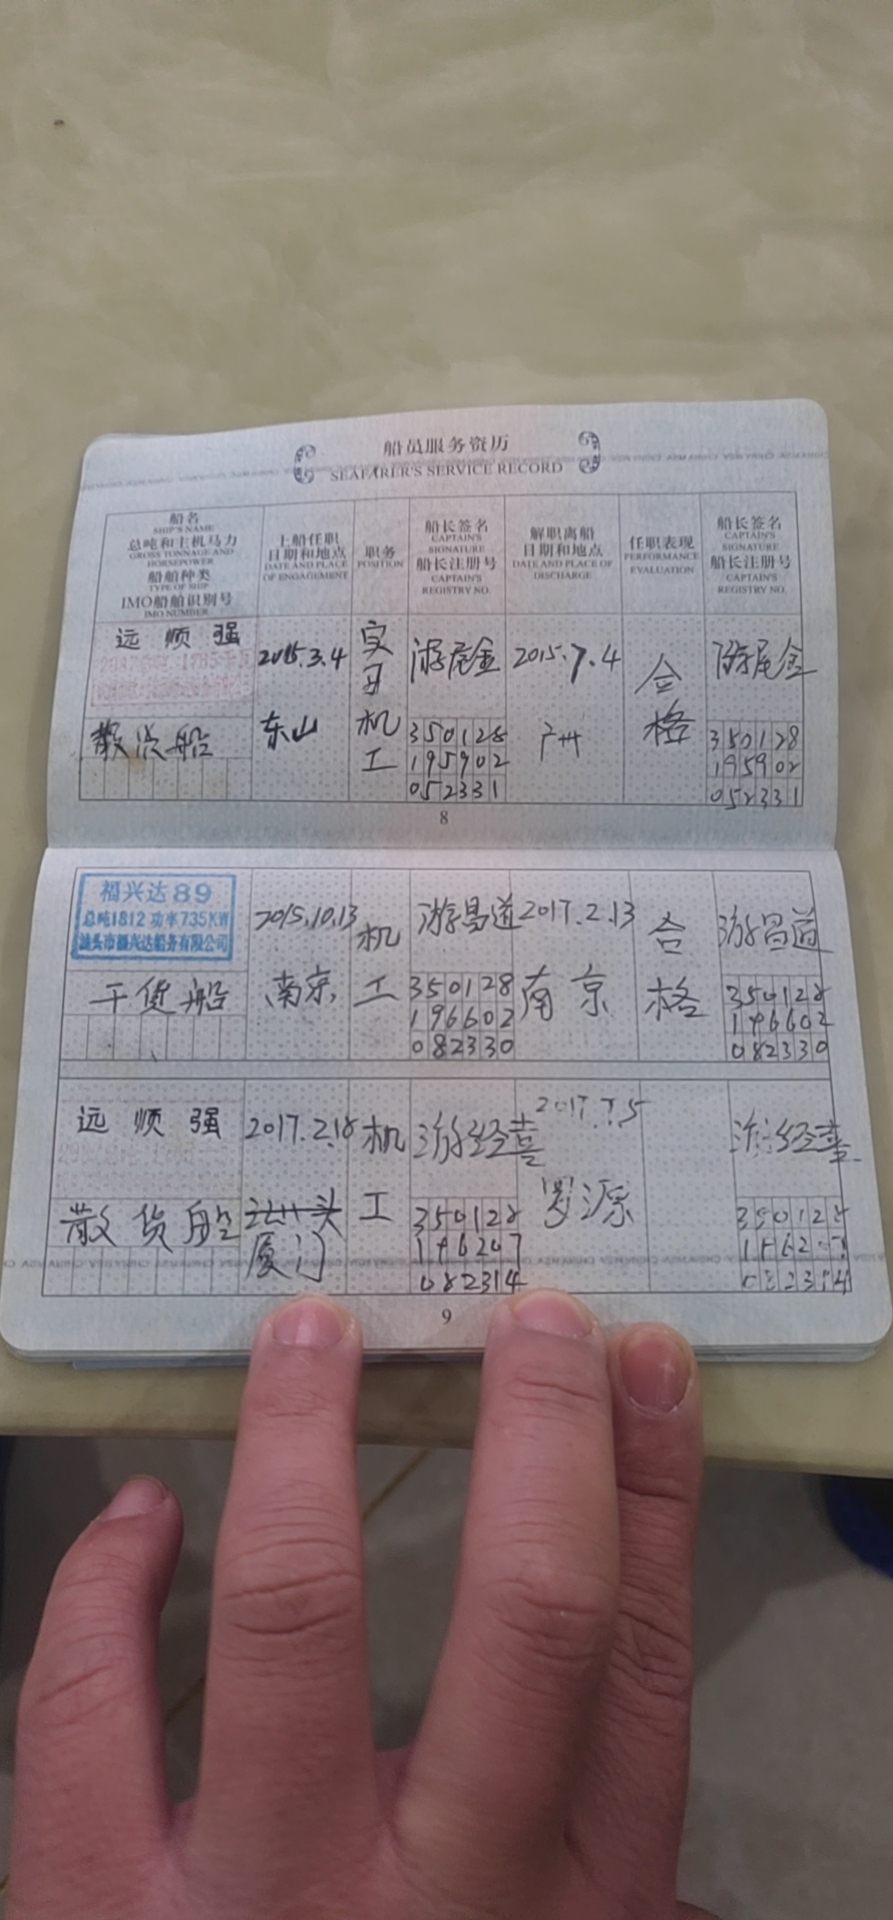 船员服务资历
SEAFARER'S SERVICE RECORD
船名
SHIP'S NAME
总吨和主机马力
GROSS TONNAGE AND
HORSEPOWER
船舶种类
TYPE OF SHIP
IMO船舶识别号
IMO NUMBER
上船任职
日期和地点
DATE AND PLACE
OF ENGAGEMENT
职务
POSITION
船长签名
CAPTAIN'S
SIGNATURE
船长注册号
CAPTAIN'S
REGISTRY NO.
解职离船
日期和地点
DATE AND PLACE OF
DISCHARGE
任职表现
PERFORMANCE
EVALUATION
船长签名
CAPTAIN'S
SIGNATURE
船长注册号
CAPTAIN'S
REGISTRY NO.
远顺强
散货船
2015.3.4
东山
实习机工
游尾金
350128
195902
052331
2015.7.4
广州
合格
游尾金
350128
195902
052331
8
福兴达89
总吨1812 功率735KW
汕头市福兴达船务有限公司
干货船
2015.10.13
南京
机工
游昌道
350128
196602
082330
2017.2.13
南京
合格
游昌道
350128
196602
082330
远顺强
散货船
2017.2.18
厦门
机工
游经喜
350128
196207
082314
2017.7.5
罗源
游经喜
350128
9